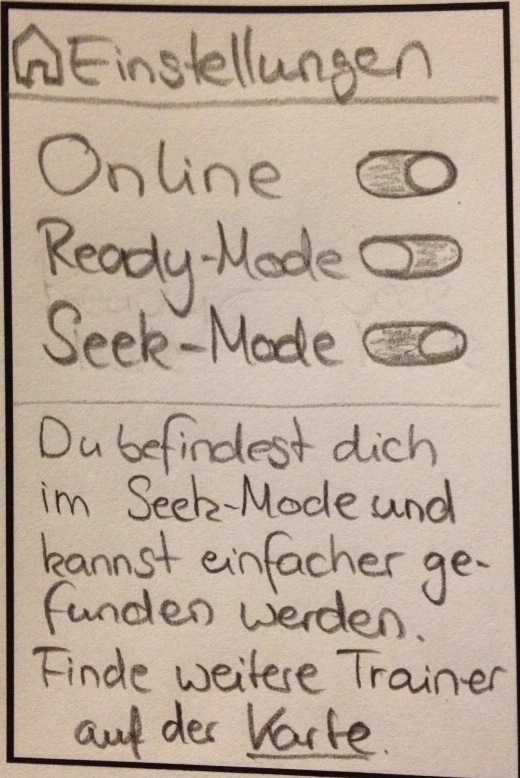 Einstellungen
Online
Ready-Mode
Seek-Mode
Du befindest dich
im Seek-Mode und
kannst einfacher ge-
funden werden.
Finde weitere Trainer
auf der Karte.